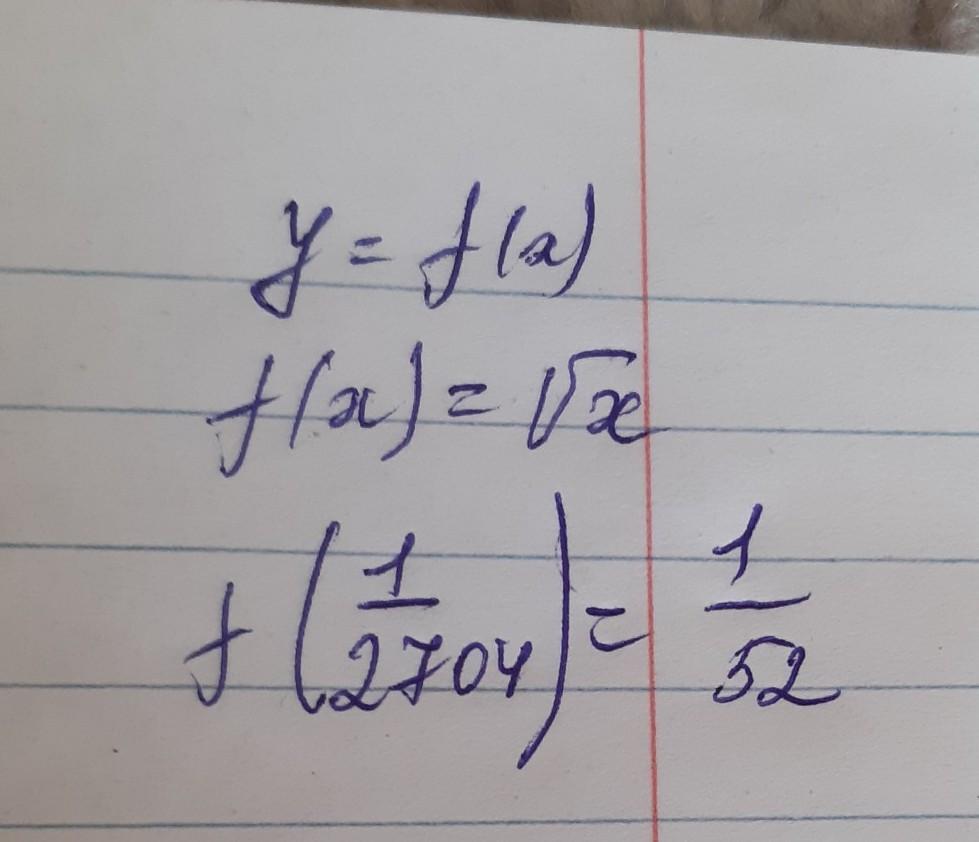 y = f(x)
f(x) = √x
f(1/2704) = 1/52